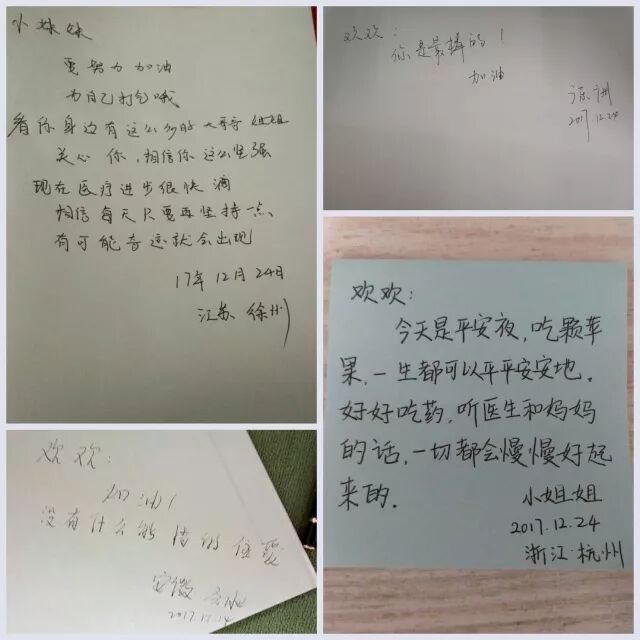 小妹妹
更努力加油
为自己打气哦
看你身边有这么多的大哥哥姐姐
关心你,相信你这么坚强
现在医疗进步很快滴
相信每天只要再坚持一点、
有可能奇迹就会出现
17年12月24日
江苏 徐州
欢欢:
你是最棒的!
加油
2017.12.24
欢欢:
今天是平安夜,吃颗苹
果,一生都可以平平安安地。
好好吃药,听医生和妈妈
的话,一切都会慢慢好起
来的.
小姐姐
2017.12.24
浙江·杭州
欢欢:
加油!
没有什么能
安徽
2017.12.24